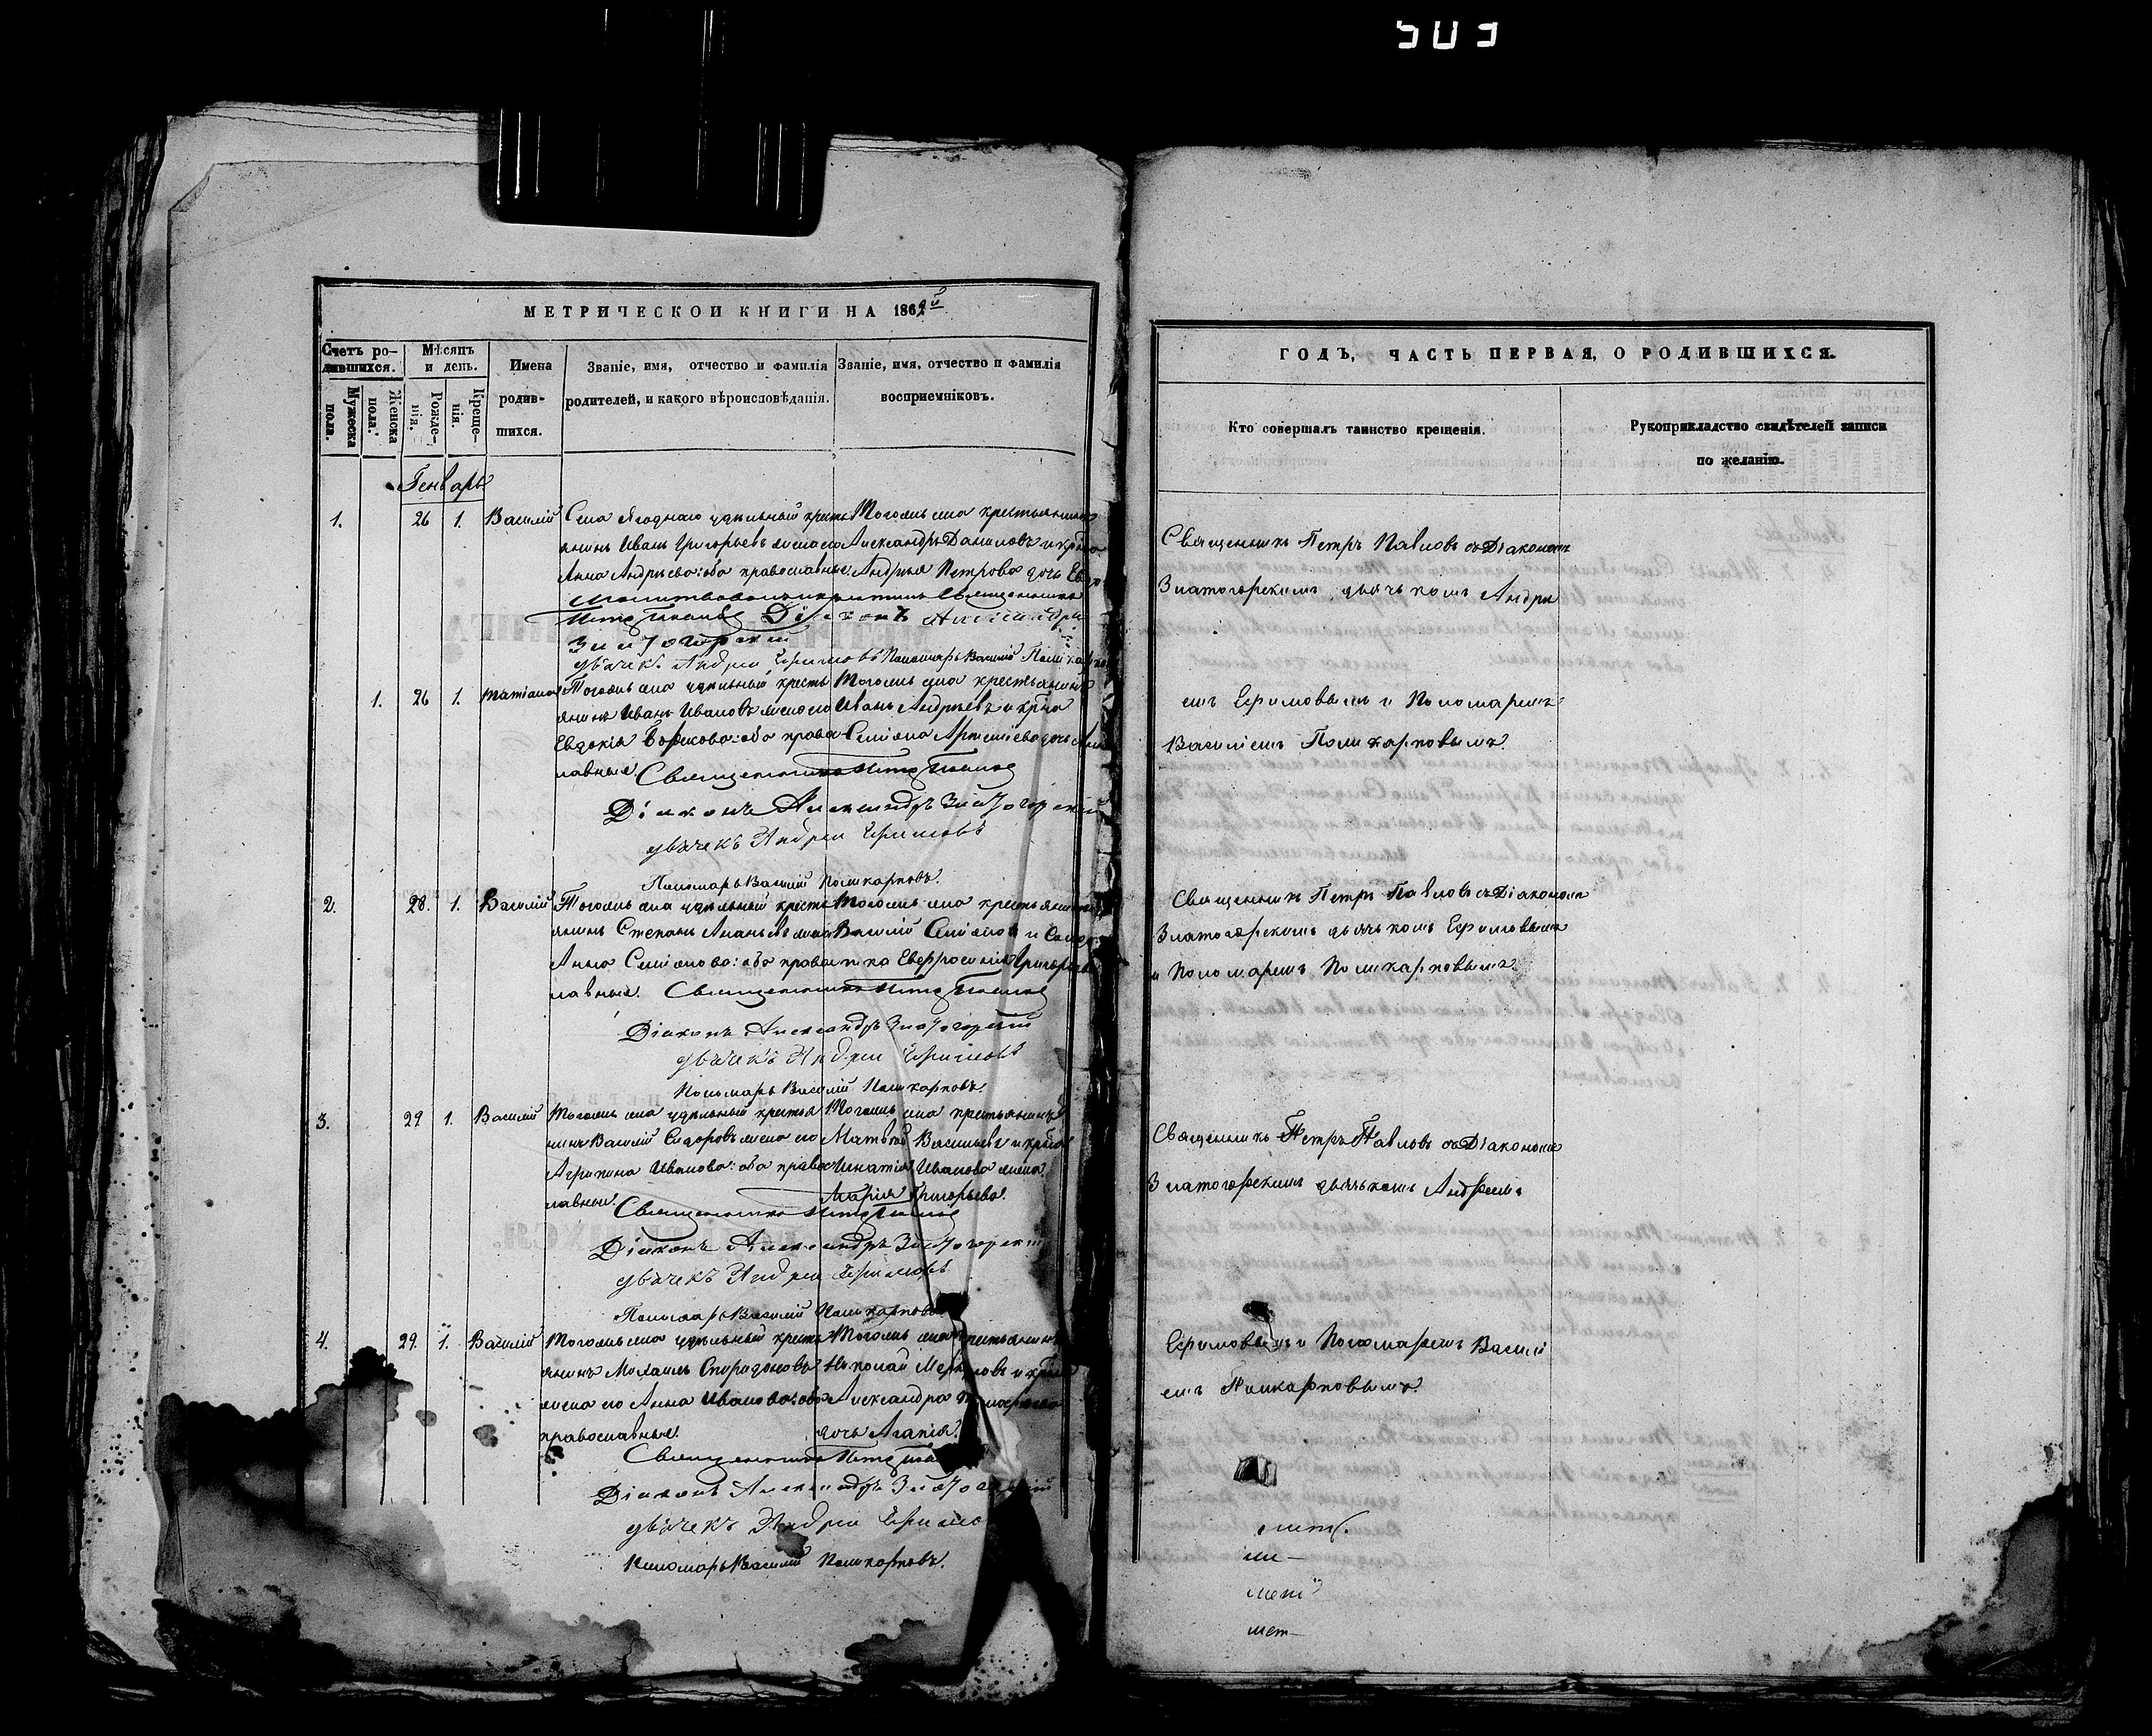 503
МЕТРИЧЕСКОЙ КНИГИ НА 1862й
Счетъ ро-
дившихся.
Мѣсяцъ
и день.
Мужеска
пола.
Женска
пола.
Рожде-
нія.
Креще-
нія.
Имена
родив-
шихся.
Званіе, имя, отчество и фамилія
родителей, и какого вѣроисповѣданія.
Званіе, имя, отчество и фамилія
воспріемниковъ.
Генварь
1. 26 1. Василій
Села Ягоднаго удѣльный кресть
янинъ Иванъ Григорьевъ жена его
Анна Андрѣева: оба православные.
Тогожъ села крестьянинъ
Александръ Даниловъ и кр
Андрѣя Петрова дочь
Священникъ
Петръ Павловъ Діаконъ Александръ
Златогорскій
дьячекъ Андрей Ефимовъ Пономарь Василій
1. 26 1. Татіана
Тогожъ села удѣльный кресть
янинъ Иванъ Ивановъ жена его
Евдокія оба правос
лавные.
Тогожъ села крестьянинъ
Иванъ Андрѣевъ и кр
дочь
Священникъ Петръ Павловъ
Діаконъ Александръ Златогорскій
дьячекъ Андрей Ефимовъ
Пономарь Василій Поликарповъ.
2. 28. 1. Василій
Тогожъ села удѣльный кресть
янинъ Степанъ Ананьевъ жена
Анна оба правос
лавные.
Тогожъ села крестьянинъ
Василій и
Священникъ Петръ Павловъ
Діаконъ Александръ Златогорскій
дьячекъ Андрей Ефимовъ
Пономарь Василій Поликарповъ.
3. 29 1. Василій
Тогожъ села удѣльный кресья
нинъ Василій Сидоровъ жена его
Агрипина Иванова: оба правос
лавные.
Тогожъ села крестьянинъ
Матвѣй Васильевъ и
Игнатія Иванова жена
Марія Григорьева.
Священникъ Петръ Павловъ
Діаконъ Александръ Златогорскій
дьячекъ Андрей Ефимовъ
Пономарь Василій Поликарповъ
4. 29. 1. Василій
Тогожъ села удѣльный кресть
янинъ Михаилъ Спиридоновъ
жена его Анна Иванова: оба
православные.
Тогожъ села
Николай и
Александра
дочь Агапія.
Священникъ Петръ
Діаконъ Александръ
дьячекъ Андрей
Пономарь Василій Поликарповъ.
ГОДЪ, ЧАСТЬ ПЕРВАЯ, О РОДИВШИХСЯ.
Кто совершалъ таинство крещенія.
Рукоприкладство свидѣтелей записи
по желанію.
Священникъ Петръ Павловъ съ Діакономъ
Златогорскимъ дьячькомъ Андре
емъ Ефимовымъ и Пономаремъ
Василіемъ Поликарповымъ.
Священникъ Петръ Павловъ съ Діакономъ
Златогорскимъ дьячькомъ Ефимовымъ
и Пономаремъ Поликарповымъ.
Священникъ Петръ Павловъ съ Діакономъ
Златогорскимъ дьячькомъ Андреемъ
Ефимовымъ и Пономаремъ Васили
емъ Поликарповымъ.